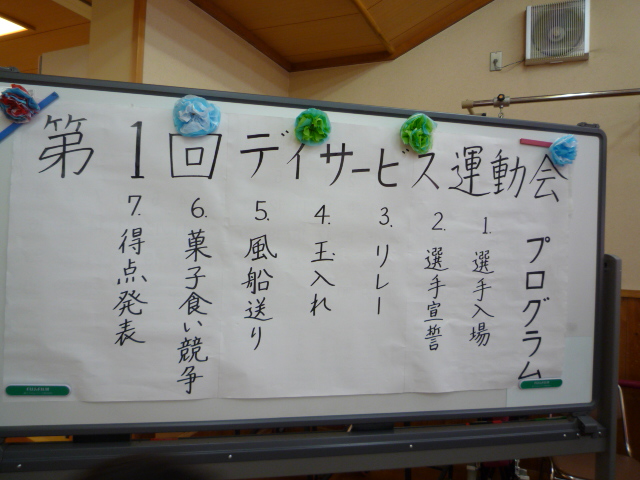 第1回デイサービス運動会
プログラム
1. 選手入場
2. 選手宣誓
3. リレー
4. 玉入れ
5. 風船送り
6. 菓子食い競争
7. 得点発表